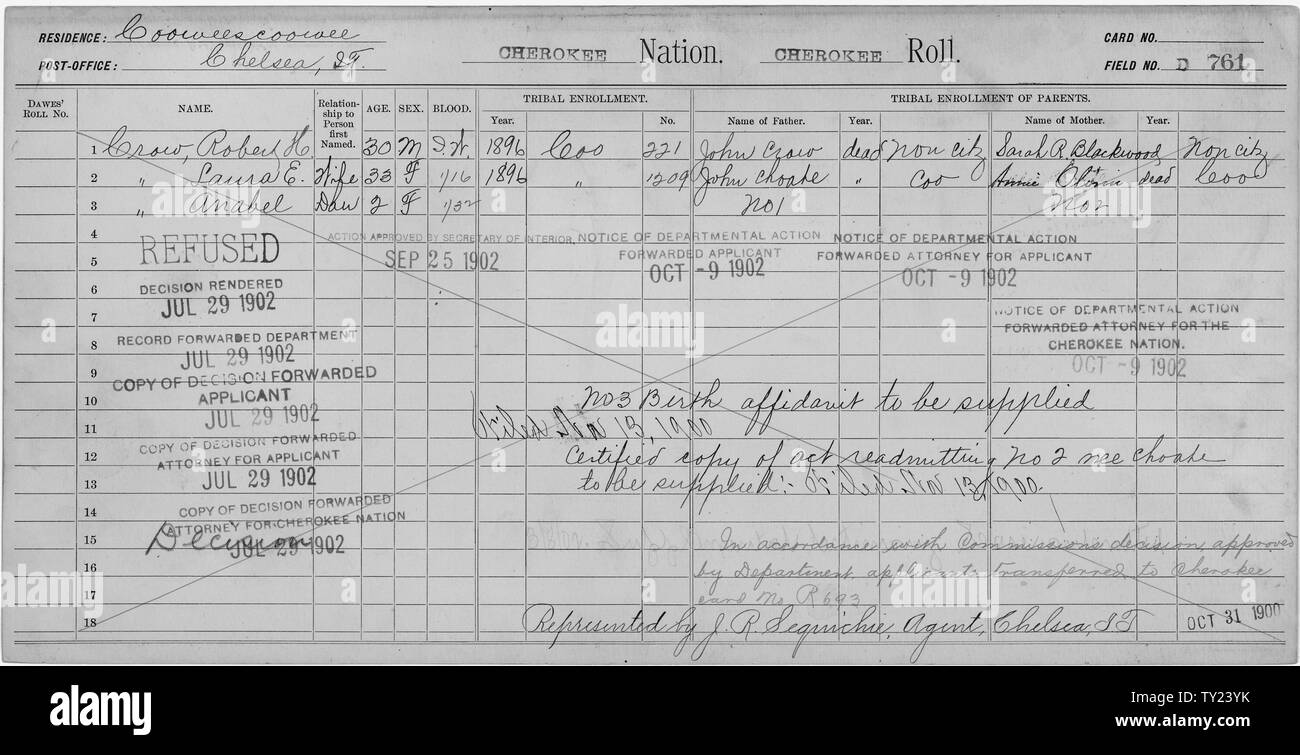 RESIDENCE: Cooweescoowee
POST-OFFICE: Chelsea, I.T.
CHEROKEE Nation. CHEROKEE Roll.
CARD NO.
FIELD NO. D 761
DAWES' ROLL NO. NAME. Relationship to Person first Named. AGE. SEX. BLOOD. TRIBAL ENROLLMENT. TRIBAL ENROLLMENT OF PARENTS.
Year. No. Name of Father. Year. Name of Mother. Year.
1 Crow, Robert H. 30 M I.W. 1896 Coo 221 John Crow dead Non Citz Sarah R. Blackwood Non citz
2 " Laura E. Wife 33 F 1/16 1896 " 1209 John Choate " Coo Annie dead Coo
3 " Anabel Dau 2 F 1/32 No 1 No 2
4
REFUSED
ACTION APPROVED BY SECRETARY OF INTERIOR.
SEP 25 1902
NOTICE OF DEPARTMENTAL ACTION
FORWARDED APPLICANT
OCT -9 1902
NOTICE OF DEPARTMENTAL ACTION
FORWARDED ATTORNEY FOR APPLICANT
OCT -9 1902
5
6
DECISION RENDERED
JUL 29 1902
7
NOTICE OF DEPARTMENTAL ACTION
FORWARDED ATTORNEY FOR THE
CHEROKEE NATION.
OCT -9 1902
8
RECORD FORWARDED DEPARTMENT
JUL 29 1902
9
COPY OF DECISION FORWARDED
APPLICANT
JUL 29 1902
10 No 3 Birth affidavit to be supplied
11 Filed Nov 13, 1900
COPY OF DECISION FORWARDED
ATTORNEY FOR APPLICANT
JUL 29 1902
12 Certified copy of act readmitting No 2 nee Choate
13 to be supplied:- Filed Nov 13, 1900.
14
COPY OF DECISION FORWARDED
ATTORNEY FOR CHEROKEE NATION
JUL 29 1902
Decision
15 In accordance with Commissions decision, approved
16 by Department, applicants transferred to Cherokee
17 card No R 693
18 Represented by J. R. Sequichie, Agent, Chelsea, I.T. OCT 31 1900
alamy
alamy
Image ID: TY23YK
www.alamy.com